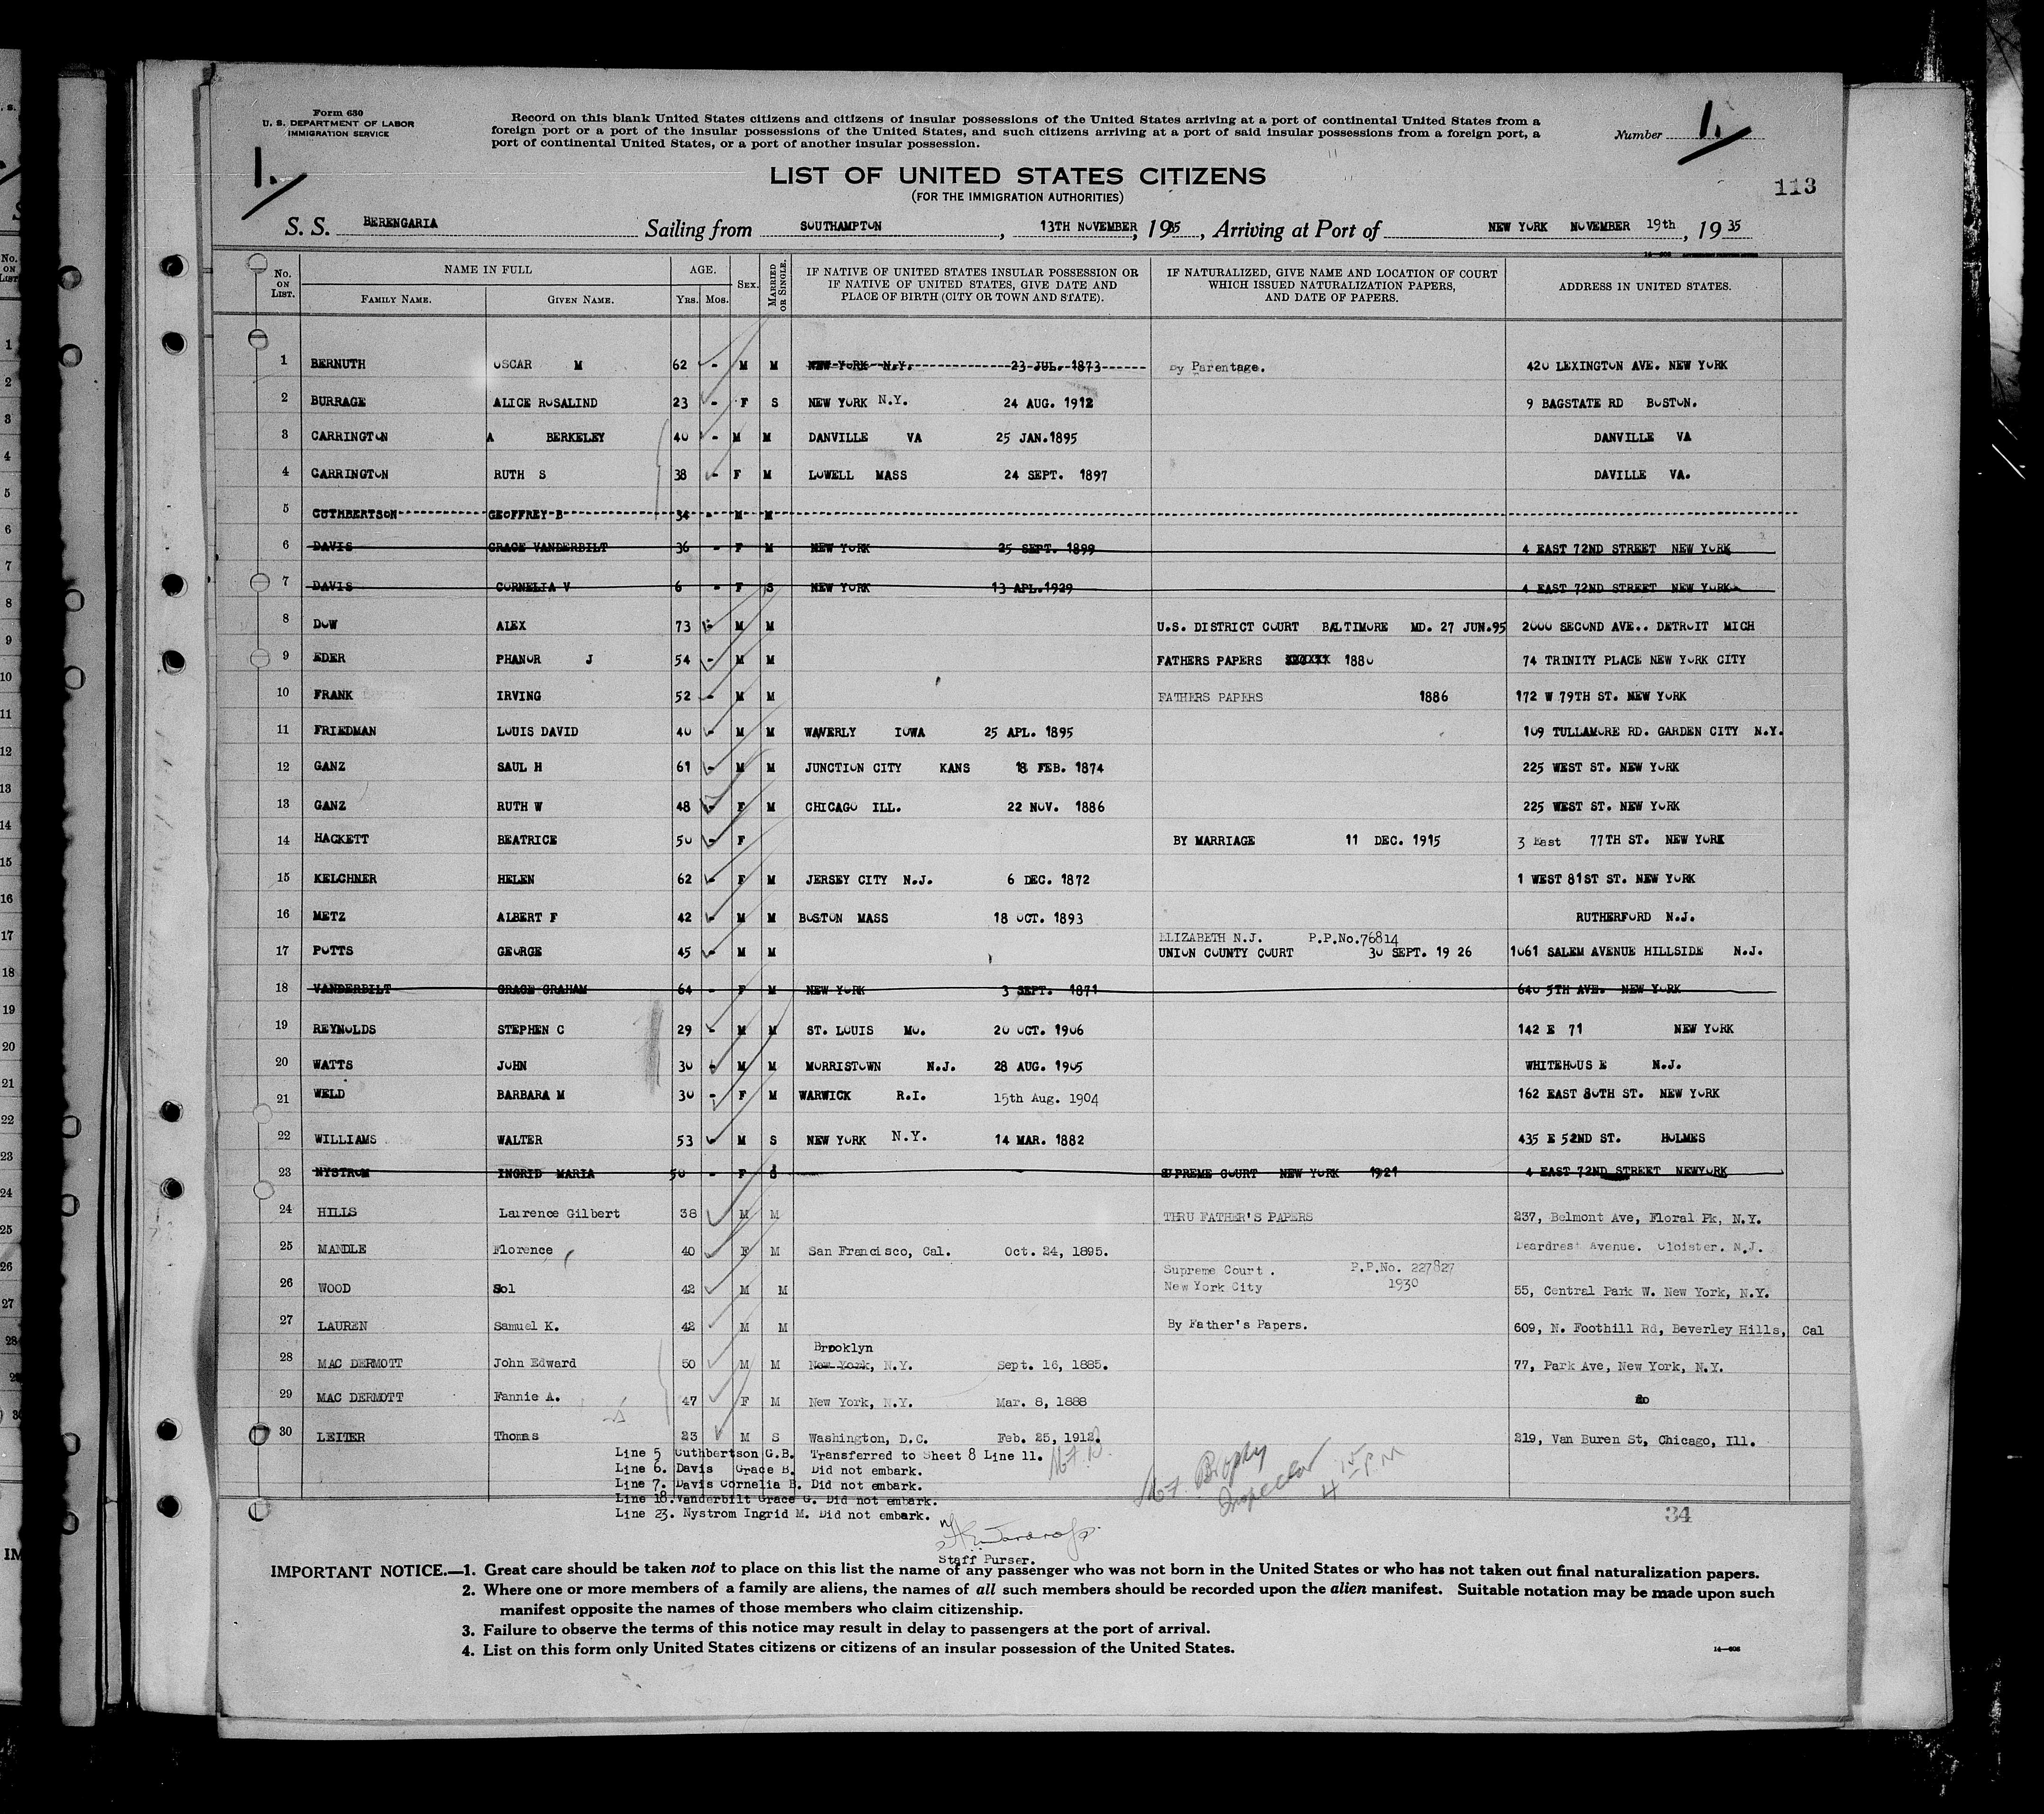 Form 630
U. S. DEPARTMENT OF LABOR
IMMIGRATION SERVICE
Record on this blank United States citizens and citizens of insular possessions of the United States arriving at a port of continental United States from a
foreign port or a port of the insular possessions of the United States, and such citizens arriving at a port of said insular possessions from a foreign port, a
port of continental United States, or a port of another insular possession.
Number 1.
1.
LIST OF UNITED STATES CITIZENS
(FOR THE IMMIGRATION AUTHORITIES)
113
S. S. BERENGARIA Sailing from SOUTHAMPTON, 13TH NOVEMBER, 1935, Arriving at Port of NEW YORK NOVEMBER 19th, 19 35
No. ON LIST. NAME IN FULL AGE. SEX. MARRIED OR SINGLE. IF NATIVE OF UNITED STATES INSULAR POSSESSION OR IF NATIVE OF UNITED STATES, GIVE DATE AND PLACE OF BIRTH (CITY OR TOWN AND STATE). IF NATURALIZED, GIVE NAME AND LOCATION OF COURT WHICH ISSUED NATURALIZATION PAPERS, AND DATE OF PAPERS. ADDRESS IN UNITED STATES.
FAMILY NAME. GIVEN NAME. Yrs. Mos.
1 BERNUTH OSCAR M 62 - M M NEW YORK N.Y. 23 JUL. 1873 By Parentage. 420 LEXINGTON AVE. NEW YORK
2 BURRAGE ALICE ROSALIND 23 - F S NEW YORK N.Y. 24 AUG. 1912 9 BAGSTATE RD BOSTON.
3 CARRINGTON A BERKELEY 40 - M M DANVILLE VA 25 JAN.1895 DANVILLE VA
4 CARRINGTON RUTH S 38 - F M LOWELL MASS 24 SEPT. 1897 DAVILLE VA.
5 CUTHBERTSON GEOFFREY B 34 - M M
6 DAVIS GRACE VANDERBILT 36 - F M NEW YORK 25 SEPT. 1899 4 EAST 72ND STREET NEW YORK
7 DAVIS CORNELIA V 6 - F S NEW YORK 13 APL.1929 4 EAST 72ND STREET NEW YORK
8 DOW ALEX 73 - M M U.S. DISTRICT COURT BALTIMORE MD. 27 JUN.95 2000 SECOND AVE.. DETROIT MICH
9 EDER PHANOR J 54 - M M FATHERS PAPERS 1880 74 TRINITY PLACE NEW YORK CITY
10 FRANK IRVING 52 - M M FATHERS PAPERS 1886 172 W 79TH ST. NEW YORK
11 FRIEDMAN LOUIS DAVID 40 - M M WAVERLY IOWA 25 APL. 1895 109 TULLAMORE RD. GARDEN CITY N.Y.
12 GANZ SAUL H 61 - M M JUNCTION CITY KANS 18 FEB. 1874 225 WEST ST. NEW YORK
13 GANZ RUTH W 48 - F M CHICAGO ILL. 22 NOV. 1886 225 WEST ST. NEW YORK
14 HACKETT BEATRICE 50 - F BY MARRIAGE 11 DEC. 1915 3 East 77TH ST. NEW YORK
15 KELCHNER HELEN 62 - F M JERSEY CITY N.J. 6 DEC. 1872 1 WEST 81ST ST. NEW YORK
16 METZ ALBERT F 42 - M M BOSTON MASS 18 OCT. 1893 RUTHERFORD N.J.
ELIZABETH N.J. P.P.No.76814
17 POTTS GEORGE 45 - M M UNION COUNTY COURT 30 SEPT. 19 26 1061 SALEM AVENUE HILLSIDE N.J.
18 VANDERBILT GRACE GRAHAM 64 - F M NEW YORK 3 SEPT. 1871 640 5TH AVE. NEW YORK
19 REYNOLDS STEPHEN C 29 - M M ST. LOUIS MO. 20 OCT. 1906 142 E 71 NEW YORK
20 WATTS JOHN 30 - M M MORRISTOWN N.J. 28 AUG. 1905 WHITEHOUS E N.J.
21 WELD BARBARA M 30 - F M WARWICK R.I. 15th Aug. 1904 162 EAST 80TH ST. NEW YORK
22 WILLIAMS WALTER 53 - M S NEW YORK N.Y. 14 MAR. 1882 435 E 52ND ST. HOLMES
23 NYSTROM INGRID MARIA 50 - F S SUPREME COURT NEW YORK 1921 4 EAST 72ND STREET NEWYORK
24 HILLS Laurence Gilbert 38 M M THRU FATHER'S PAPERS 237, Belmont Ave, Floral Pk, N.Y.
25 MANDLE Florence 40 F M San Francisco, Cal. Oct. 24, 1895. Avenue. Cloister. N.J.
Supreme Court. P.P.No. 227827
26 WOOD Sol 42 M M New York City 1930 55, Central Park W. New York, N.Y.
27 LAUREN Samuel K. 42 M M By Father's Papers. 609, N. Foothill Rd, Beverley Hills, Cal
Brooklyn
28 MAC DERMOTT John Edward 50 M M New York, N.Y. Sept. 16, 1885. 77, Park Ave, New York, N.Y.
29 MAC DERMOTT Fannie A. 47 F M New York, N.Y. Mar. 8, 1888 do
30 LEITER Thomas 23 M S Washington, D.C. Feb. 25, 1912. 219, Van Buren St, Chicago, Ill.
Line 5 Cuthbertson G.B. Transferred to Sheet 8 Line 11.
Line 6. Davis Grace B. Did not embark.
Line 7. Davis Cornelia B. Did not embark.
Line 18. Vanderbilt Grace G. Did not embark.
Line 23. Nystrom Ingrid M. Did not embark.
Brophy
Inspector
4 15 PM
34
Staff Purser.
IMPORTANT NOTICE.—1. Great care should be taken not to place on this list the name of any passenger who was not born in the United States or who has not taken out final naturalization papers.
2. Where one or more members of a family are aliens, the names of all such members should be recorded upon the alien manifest. Suitable notation may be made upon such
manifest opposite the names of those members who claim citizenship.
3. Failure to observe the terms of this notice may result in delay to passengers at the port of arrival.
4. List on this form only United States citizens or citizens of an insular possession of the United States.